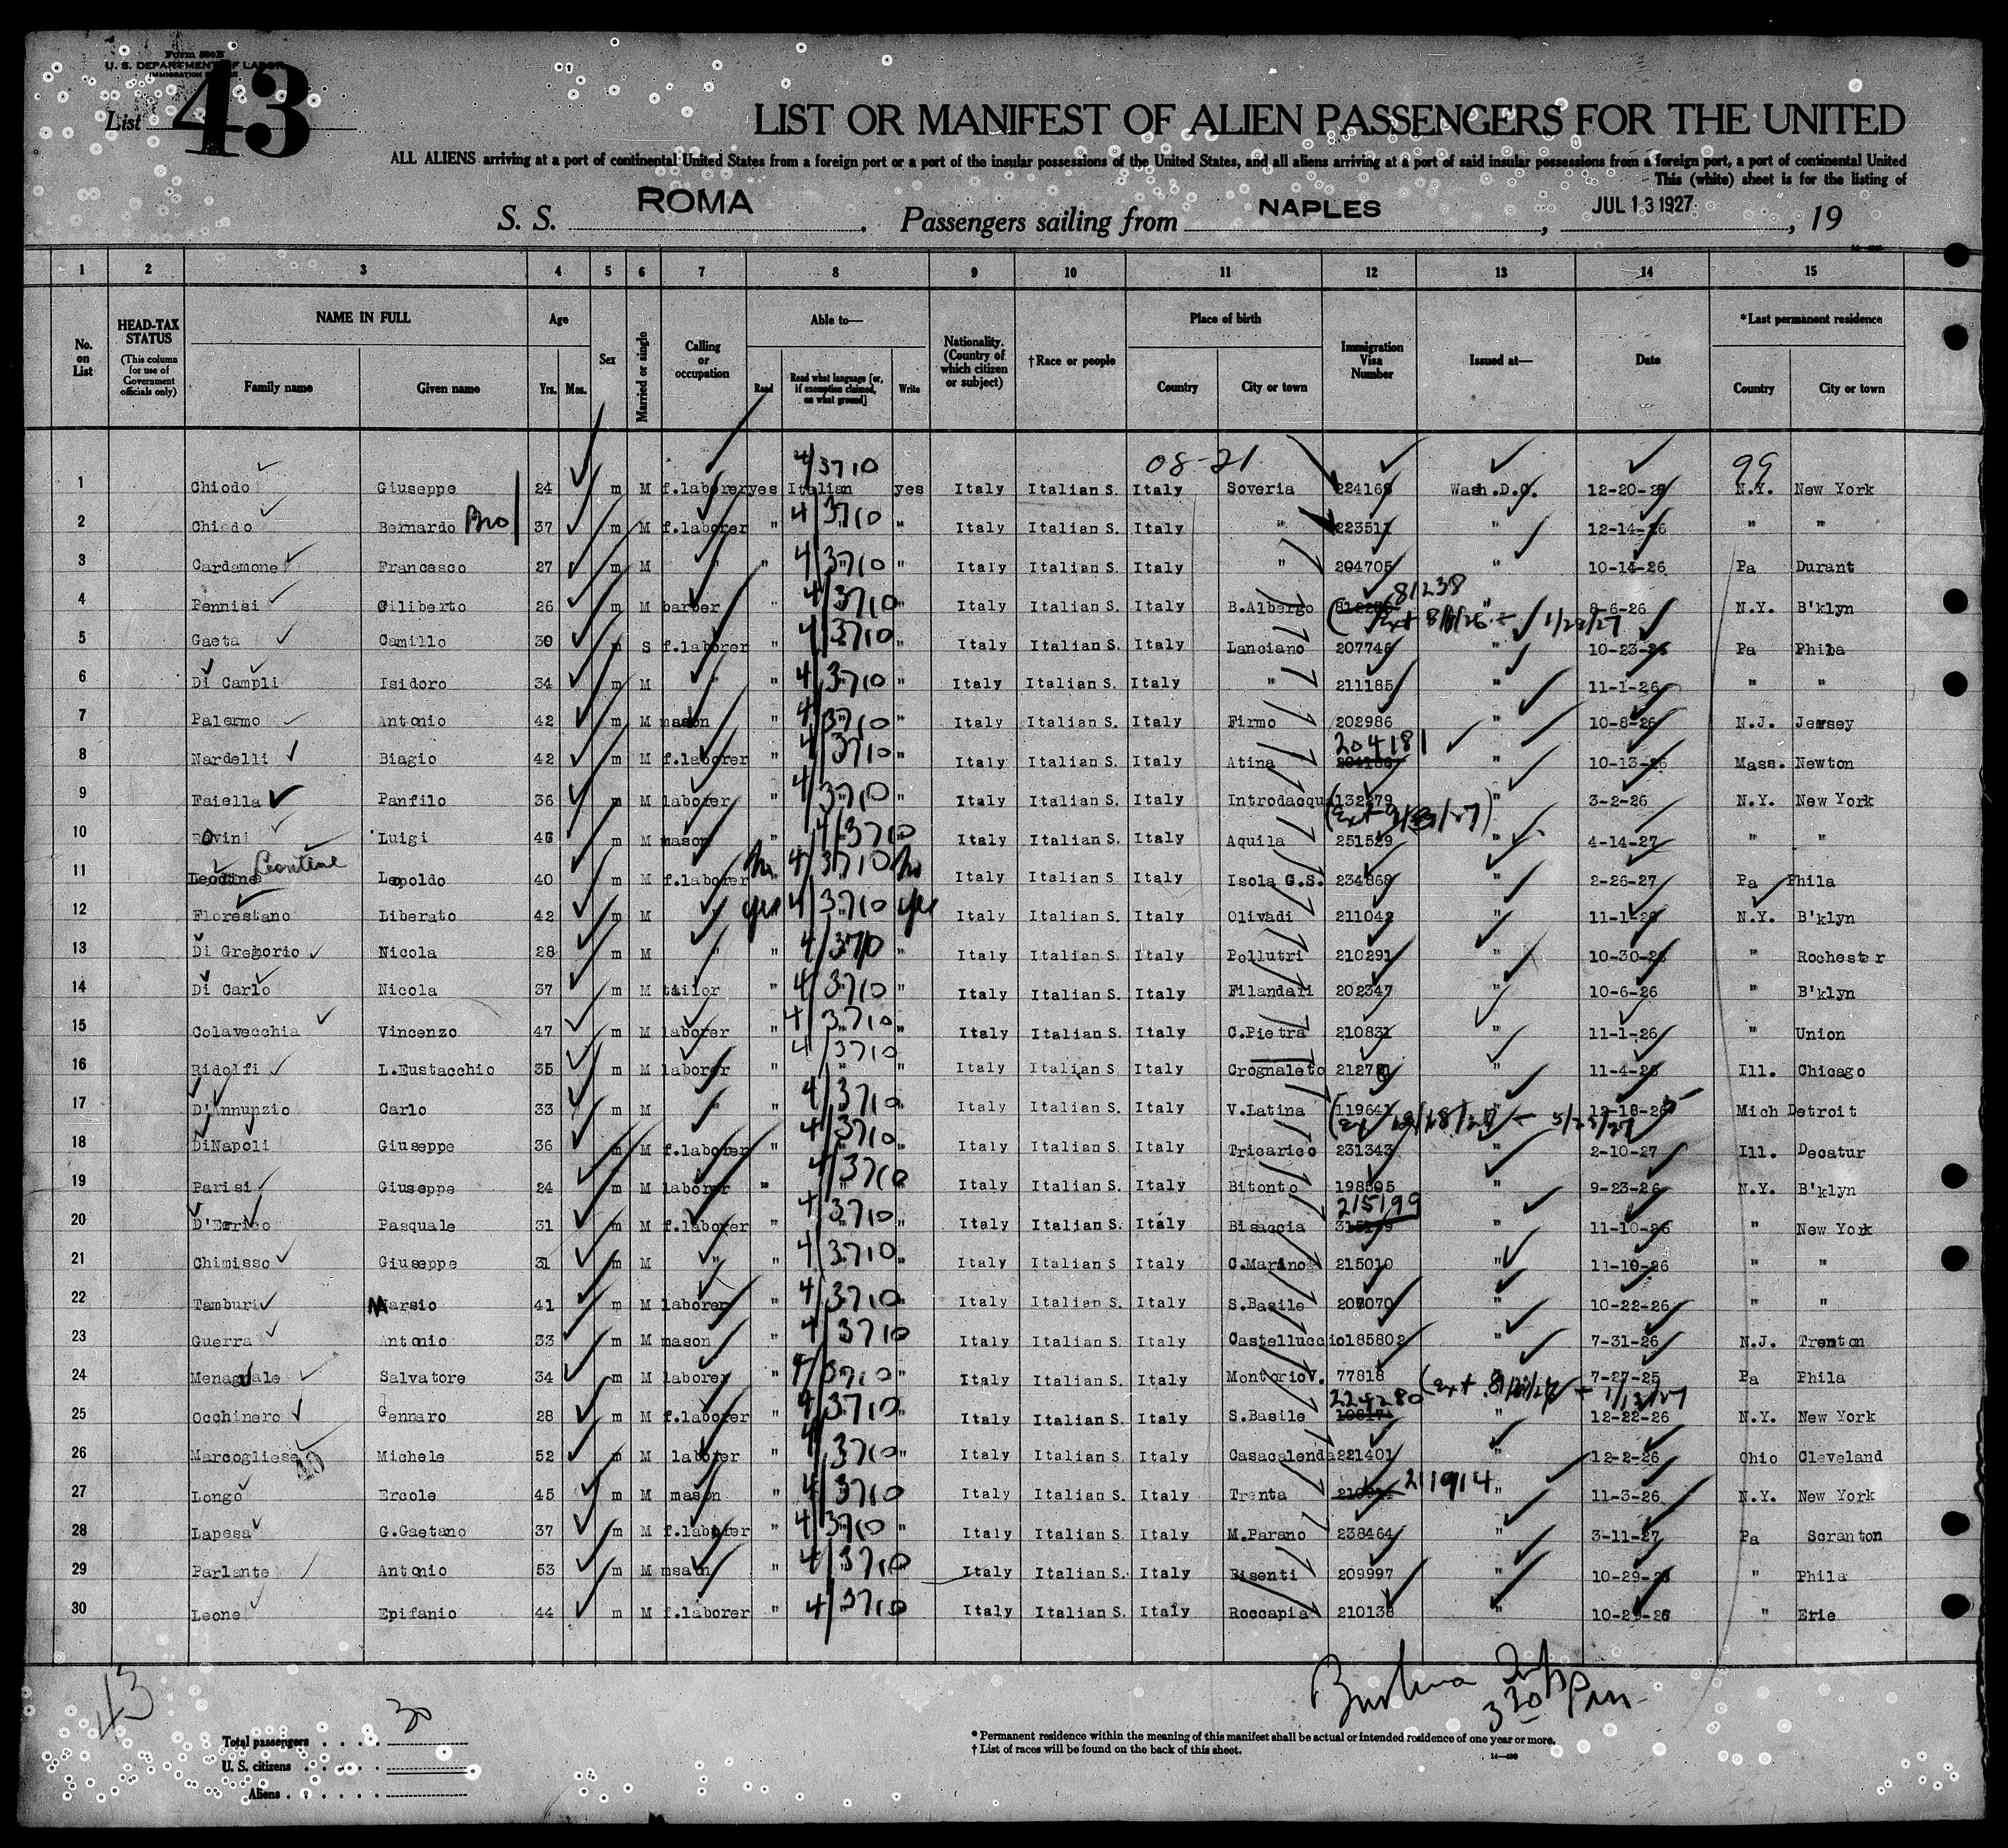 Form 500B
U. S. DEPARTMENT OF LABOR
IMMIGRATION SERVICE
List 43
LIST OR MANIFEST OF ALIEN PASSENGERS FOR THE UNITED
ALL ALIENS arriving at a port of continental United States from a foreign port or a port of the insular possessions of the United States, and all aliens arriving at a port of said insular possessions from a foreign port, a port of continental United
This (white) sheet is for the listing of
S. S. ROMA . Passengers sailing from NAPLES , JUL 13 1927 , 19
1 2 3 4 5 6 7 8 9 10 11 12 13 14 15
No. on List
HEAD-TAX STATUS (This column for use of Government officials only)
NAME IN FULL Family name Given name
Age Yrs. Mos.
Sex
Married or single
Calling or occupation
Able to— Read Read what language [or, if exemption claimed, on what ground] Write
Nationality. (Country of which citizen or subject)
†Race or people
Place of birth Country City or town
Immigration Visa Number
Issued at—
Date
*Last permanent residence Country City or town
4/3710 08-21 99
1 Chiodo Giuseppe 24 m M f.laborer yes Italian yes Italy Italian S. Italy Soveria 224168 Wash.D.C. 12-20-26 N.Y. New York
2 Chiodo Bernardo Bro 37 m M f.laborer " 4/3710 " Italy Italian S. Italy " 223511 " 12-14-26 " "
3 Cardamone Francesco 27 m M " " 4/3710 " Italy Italian S. Italy " 204705 " 10-14-26 Pa Durant
4 Pennisi Giliberto 26 m M barber " 4/3710 " Italy Italian S. Italy B.Albergo 81238 " 8-6-26 N.Y. B'klyn
5 Gaeta Camillo 30 m S f.laborer " 4/3710 " Italy Italian S. Italy Lanciano 207746 " 10-23-26 Pa Phila
6 Di Campli Isidoro 34 m M " " 4/3710 " Italy Italian S. Italy " 211185 " 11-1-26 " "
7 Palermo Antonio 42 m M mason " 4/3710 " Italy Italian S. Italy Firmo 202986 " 10-8-26 N.J. Jersey
8 Nardelli Biagio 42 m M f.laborer " 4/3710 " Italy Italian S. Italy Atina 204181 " 10-13-26 Mass. Newton
9 Faiella Panfilo 36 m M laborer " 4/3710 " Italy Italian S. Italy Introdacqua 132279 " 3-2-26 N.Y. New York
10 Rovini Luigi 46 m M mason " 4/3710 Italy Italian S. Italy Aquila 251529 " 4-14-27 " "
11 Leontine Leopoldo 40 m M f.laborer no 4/3710 no Italy Italian S. Italy Isola G.S. 234869 " 2-26-27 Pa Phila
12 Florestano Liberato 42 m M " yes 4/3710 yes Italy Italian S. Italy Olivadi 211042 " 11-1-26 N.Y. B'klyn
13 Di Gregorio Nicola 28 m M " " 4/3710 " Italy Italian S. Italy Pollutri 210291 " 10-30-26 " Rochester
14 Di Carlo Nicola 37 m M tailor " 4/3710 " Italy Italian S. Italy Filandari 202347 " 10-6-26 " B'klyn
15 Colavecchia Vincenzo 47 m M laborer " 4/3710 " Italy Italian S. Italy C.Pietra 210831 " 11-1-26 " Union
16 Ridolfi L.Eustacchio 35 m M laborer " 4/3710 " Italy Italian S. Italy Crognaleto " 11-4-26 Ill. Chicago
17 D'Annunzio Carlo 33 m M " " 4/3710 " Italy Italian S. Italy V.Latina 119641 Mich Detroit
18 DiNapoli Giuseppe 36 m M f.laborer " 4/3710 Italy Italian S. Italy Tricarico 231343 " 2-10-27 Ill. Decatur
19 Parisi Giuseppe 24 m M laborer " 4/3710 Italy Italian S. Italy Bitonto 198505 " 9-23-26 N.Y. B'klyn
20 D'Errico Pasquale 31 m M f.laborer " 4/3710 Italy Italian S. Italy Bisaccia 215199 " 11-10-26 " New York
21 Chimisso Giuseppe 31 m M " " 4/3710 " Italy Italian S Italy C.Marino 215010 " 11-10-26 " "
22 Tamburi Marsio 41 m M laborer " 4/3710 Italy Italian S. Italy S.Basile 207070 " 10-22-26 " "
23 Guerra Antonio 33 m M mason " 4/3710 Italy Italian S. Italy Castelluccio 185802 " 7-31-26 N.J. Trenton
24 Menaguale Salvatore 34 m M laborer " 4/3710 " Italy Italian S. Italy MontorioV. 77818 7-27-25 Pa Phila
25 Occhinero Gennaro 28 m M f.laborer " 4/3710 " Italy Italian S. Italy S.Basile 224280 " 12-22-26 N.Y. New York
26 Marcogliese Michele 52 m M laborer " 4/3710 " Italy Italian S. Italy Casacalenda 221401 " 12-2-26 Ohio Cleveland
27 Longo Ercole 45 m M mason " 4/3710 Italy Italian S. Italy Trenta 211914 " 11-3-26 N.Y. New York
28 Lapesa G.Gaetano 37 m M f.laborer " 4/3710 " Italy Italian S. Italy M.Parano 238464 " 3-11-27 Pa Scranton
29 Parlante Antonio 53 m M msaon " 4/3710 Italy Italian S. Italy Bisenti 209997 " 10-29-26 " Phila
30 Leone Epifanio 44 m M f.laborer " 4/3710 Italy Italian S. Italy Roccapia 210138 " 10-29-26 " Erie
43
3 30 pm
Total passengers . . . . 30
U. S. citizens . . . . .
Aliens . . . . . .
* Permanent residence within the meaning of this manifest shall be actual or intended residence of one year or more.
† List of races will be found on the back of this sheet.